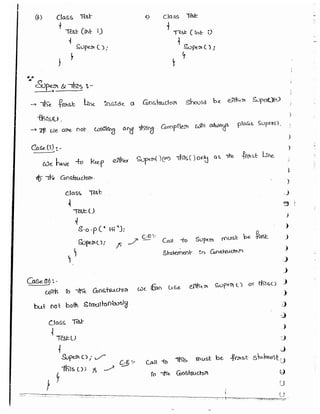 (k) class Test
{
Test (int i)
{
Super();
}
}
l) class Test
{
Test (int i)
{
Super();
}
}
Super & this :-
→ The first Line Inside a Constructor should be either Super()
this().
→ If we are not writing any thing Compiler will always place Super().
Case(i):-
we have to keep either Super() (or) this() only as the first Line
of the Constructor.
class Test
{
Test()
{
S.o.p("Hi");
Super(); C.E:- Call to Super must be first
Statement in Constructor
}
}
Case(ii):-
with in the Constructor we can use either Super() or this()
but not both Simultaniously
class Test
{
Test()
{
Super(); ✓
this(); C.E:- Call to this must be first statement
in the Constructor
}
}